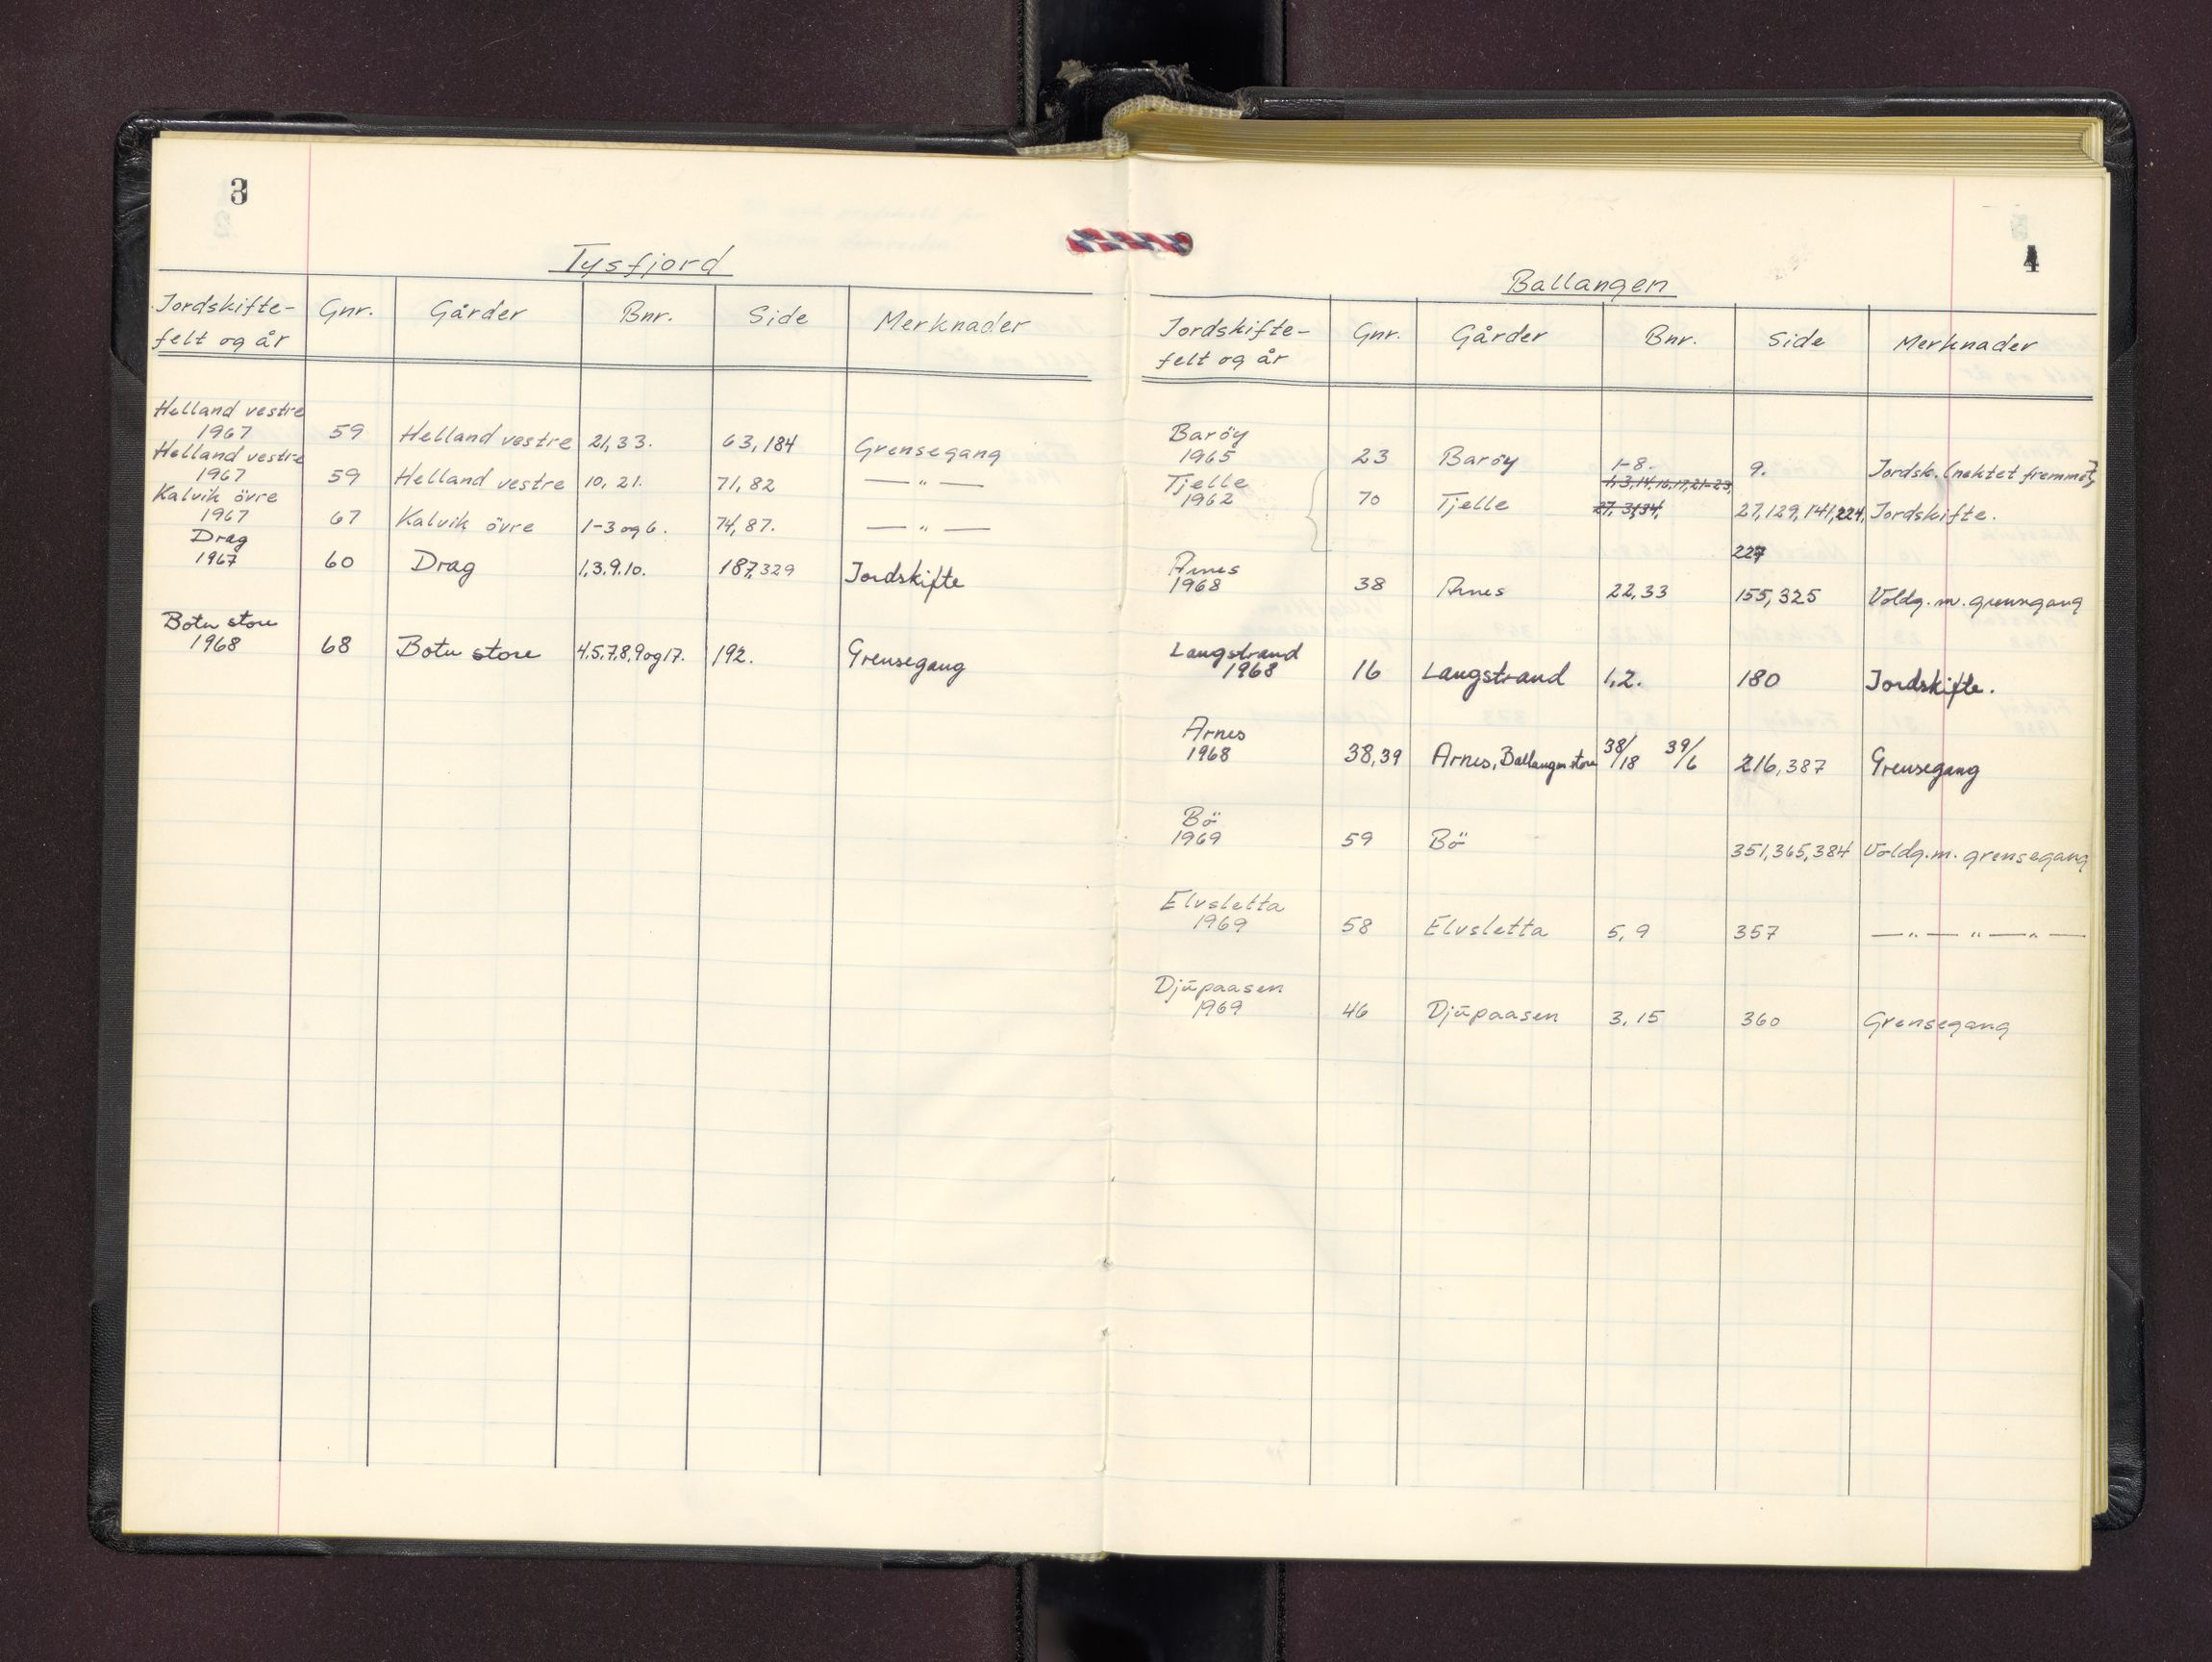 3
Tysfjord
Jordskifte- felt og år Gnr. Gårder Bnr. Side Merknader
Helland vestre
1967 59 Helland vestre 21,33. 63,184 Grensegang
Helland vestre
1967 59 Helland vestre 10, 21. 71, 82 — " —
Kalvik övre
1967 67 Kalvik övre 1-3 og 6. 74, 87. — " —
Drag
1967 60 Drag 1,3.9.10. 187,329 Jordskifte
Botn store
1968 68 Botn store 4.5,7.8,9 og 17. 192. Grensegang
4
Ballangen
Jordskifte- felt og år Gnr. Gårder Bnr. Side Merknader
Baröy
1965 23 Baröy 1-8. 9. Jordsk. (nektet fremmet)
Tjelle
1962 70 Tjelle 27,129,141,224, Jordskifte.
227
Arnes
1968 38 Arnes 22,33 155,325 Voldg. m. grensegang
Langstrand
1968 16 Langstrand 1,2. 180 Jordskifte.
Arnes
1968 38,39 Arnes, Ballangen store 38/18 39/6 216,387 Grensegang
Bö
1969 59 Bö 351,365,384 Voldg. m. grensegang
Elvsletta
1969 58 Elvsletta 5, 9 357 — " — " — " —
Djupaasen
1969 46 Djupaasen 3, 15 360 Grensegang